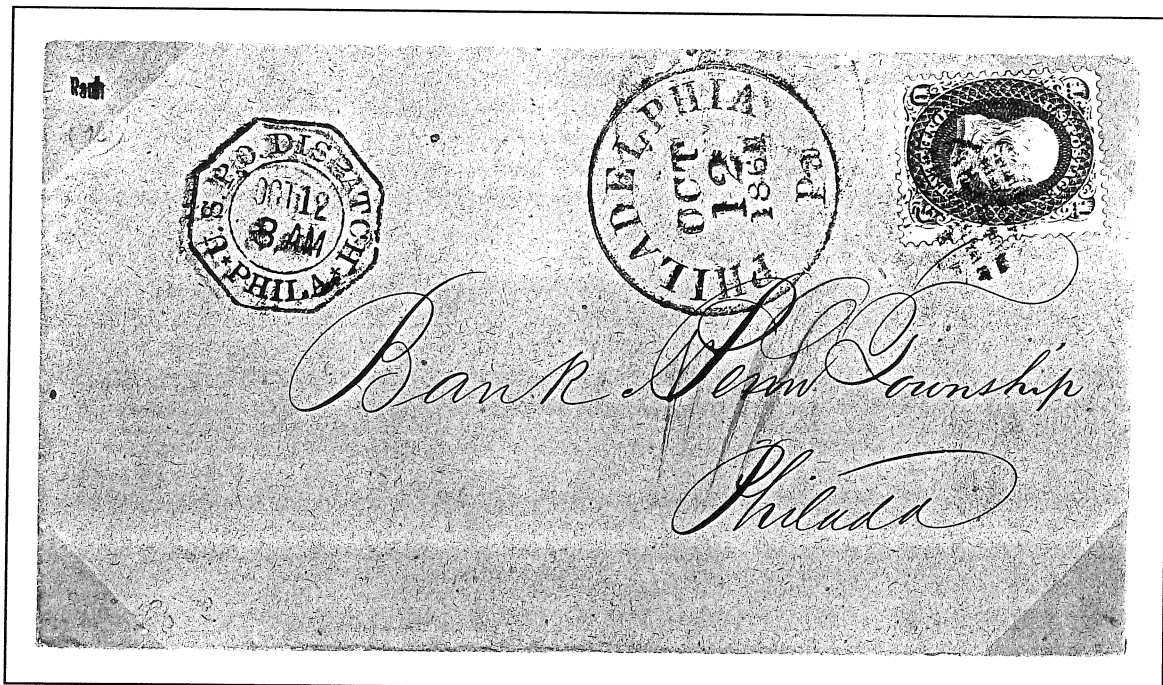 U.S.P.O. DISPATCH
OCT 12
8 AM
*PHILA*
PHILADELPHIA Pa
OCT
12
1861
Bank Penn Township
Philada